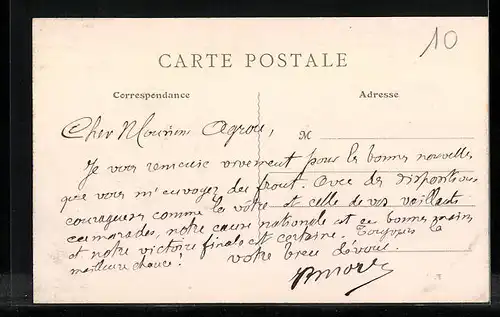 10
CARTE POSTALE
Correspondance
Adresse
Cher Monsieur
M
Je vous remercie vivement pour les bonnes nouvelles
que vous m'envoyez du front. Avec des dispositions
courageuses comme la vôtre et celle de vos vaillants
camarades, notre cause nationale est en bonnes mains
et notre victoire finale est certaine. Toujours la
meilleure chance! votre bien dévoué.